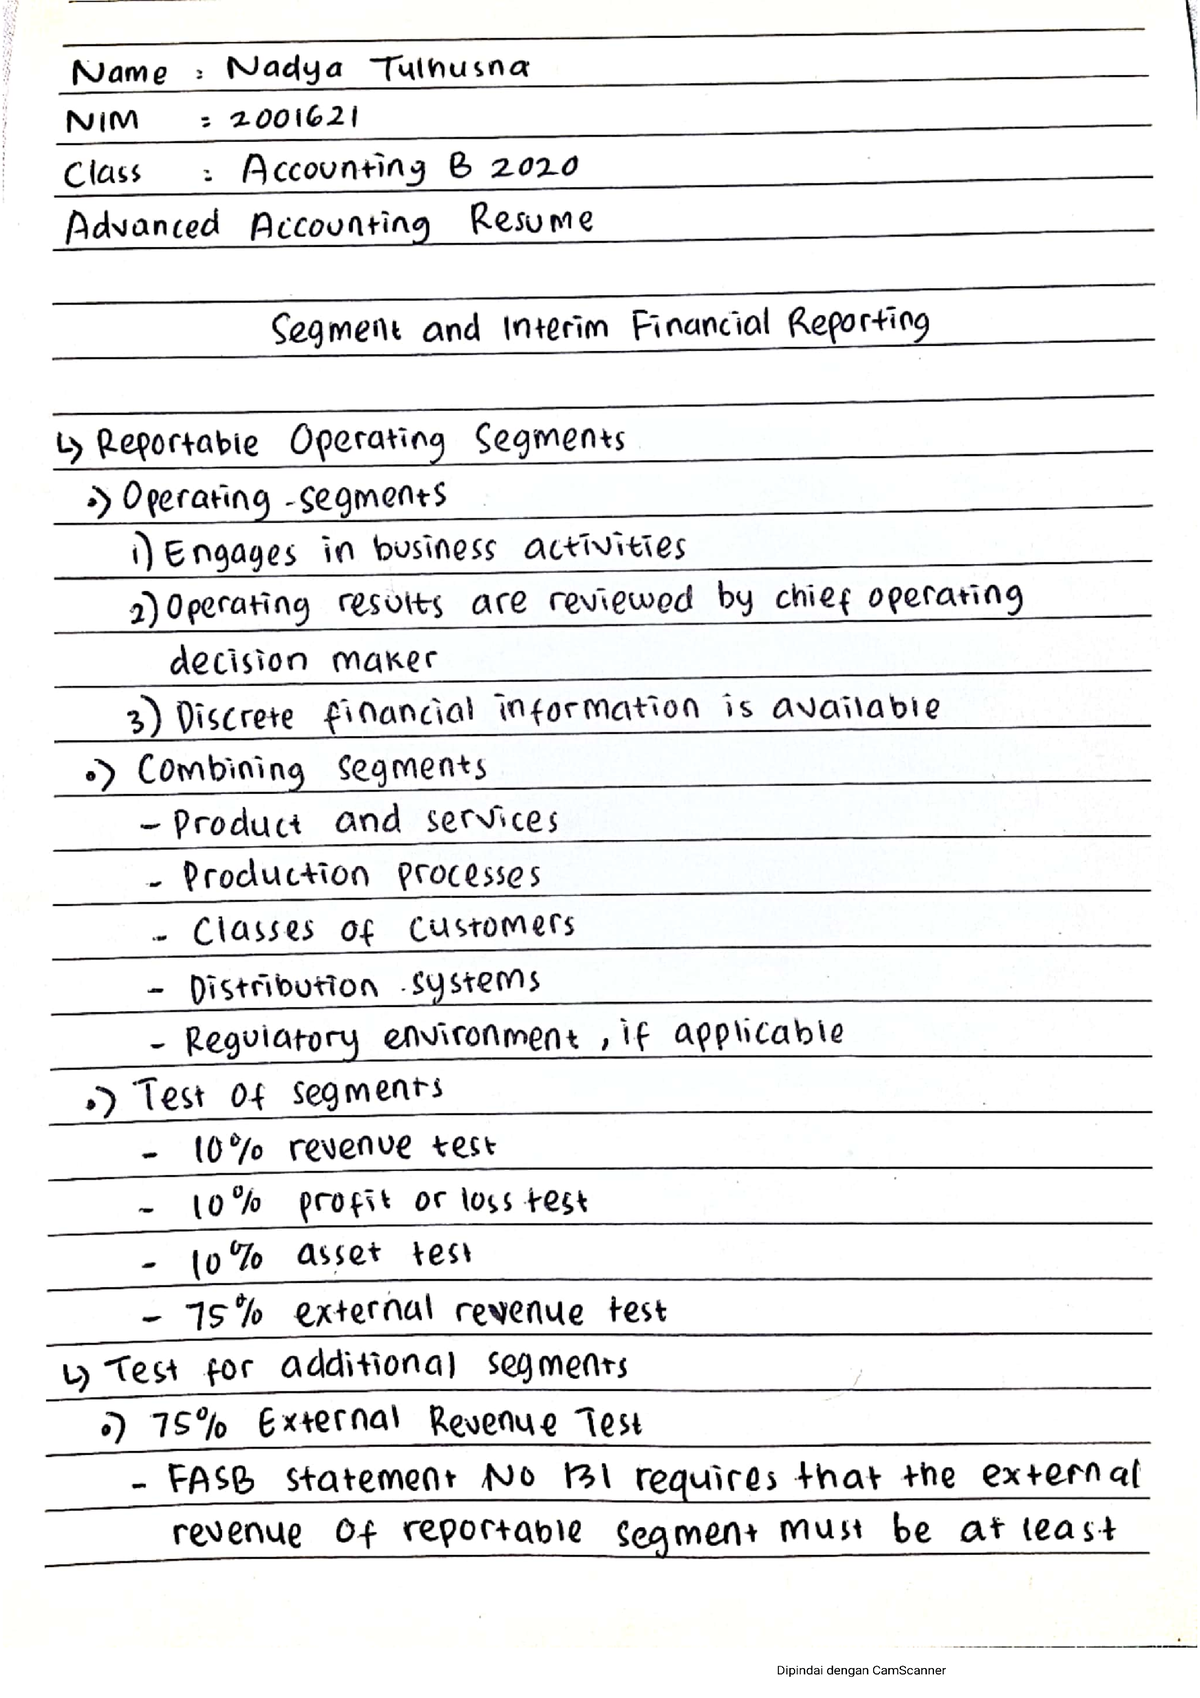 Name : Nadya Tulhusna
NIM : 2001621
Class : Accounting B 2020
Advanced Accounting Resume
Segment and Interim Financial Reporting
↳ Reportable Operating Segments
•) Operating - segments
1) Engages in business activities
2) Operating results are reviewed by chief operating
decision maker
3) Discrete financial information is available
•) Combining segments
- Product and services
- Production processes
- Classes of customers
- Distribution systems
- Regulatory environment, if applicable
•) Test of segments
- 10% revenue test
- 10% profit or loss test
- 10% asset test
- 75% external revenue test
↳ Test for additional segments
•) 75% External Revenue Test
- FASB statement No 131 requires that the external
revenue of reportable segment must be at least
Dipindai dengan CamScanner